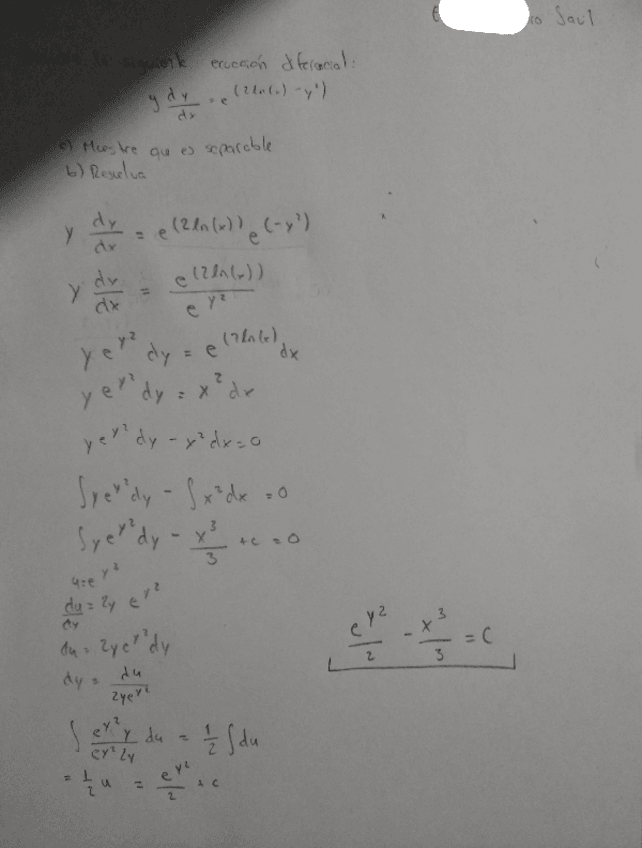 Saul
siguiente ecuación diferencial:
y dy/dx = e^(2ln(x) - y²)
a) Muestre que es separable
b) Resuelva
y dy/dx = e^(2ln(x)) e^(-y²)
y dy/dx = e^(2ln(x)) / e^y²
y e^y² dy = e^(2ln(x)) dx
y e^y² dy = x² dx
y e^y² dy - x² dx = 0
∫ y e^y² dy - ∫ x² dx = 0
∫ y e^y² dy - x³/3 + c = 0
u = e^y²
du/dy = 2y e^y²
du = 2y e^y² dy
dy = du / 2y e^y²
∫ e^y² y / e^y² 2y du = 1/2 ∫ du
= 1/2 u = e^y²/2 + c
e^y²/2 - x³/3 = C